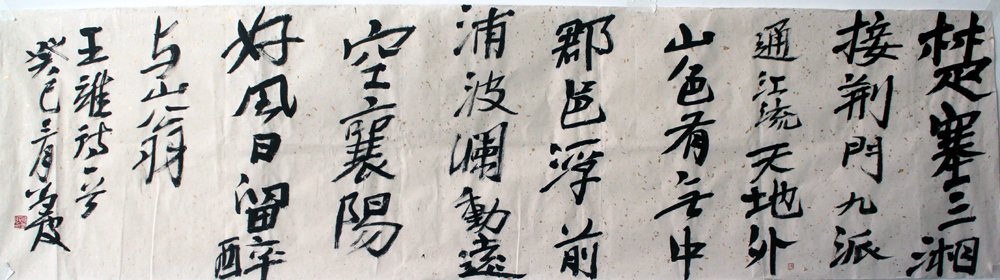 楚塞三湘
接荆門九派
通江流天地外
山色有无中
郡邑浮前
浦波瀾動遠
空襄陽
好风日留醉
与山翁
王維诗一首
癸巳